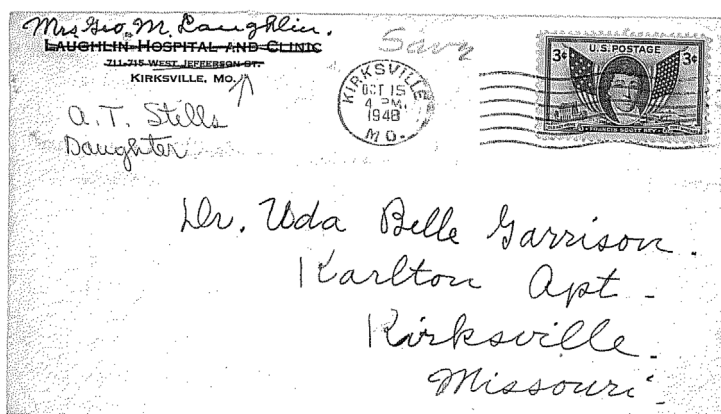 Mrs Geo. M. Laughlin.
LAUGHLIN HOSPITAL AND CLINIC
711-715 WEST JEFFERSON ST.
KIRKSVILLE, MO.
A. T. Stells
Daughter
Save
KIRKSVILLE
OCT 15
4 PM.
1948
MO.
U.S. POSTAGE
3¢ 3¢
FRANCIS SCOTT KEY
Dr. Uda Belle Garrison.
Karlton Apt.
Kirksville.
Missouri.